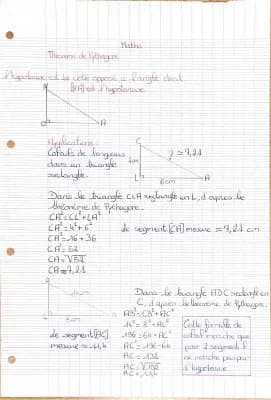 Maths
Théorème de Pythagore
l'hypoténuse est le côté opposé à l'angle droit
[NA] est l'hypoténuse
N
O
A
Applications
Calculs de longueurs
dans un triangle
rectangle.
C
4cm
? ≈ 7,21
L
6cm
A
Dans le triangle CLA rectangle en L, d'après le
théorème de Pythagore.
CA² = CL² + LA²
CA² = 4² + 6²
CA² = 16 + 36
CA² = 52
CA = √52
CA ≈ 7,21
de segment [CA] mesure ≈ 7,21 cm
Dans le triangle ADC rectangle en
C, d'après le théorème de Pythagore.
14² = 8² + AC²
196 = 64 + AC²
AC = 196 - 64
AC = 132
AC = √132
de segment [AC]
mesure ≈ 11,4
Cette formule de
calcul marche que
pour 2 segments, il
ne marche pas pour
l'hypoténuse